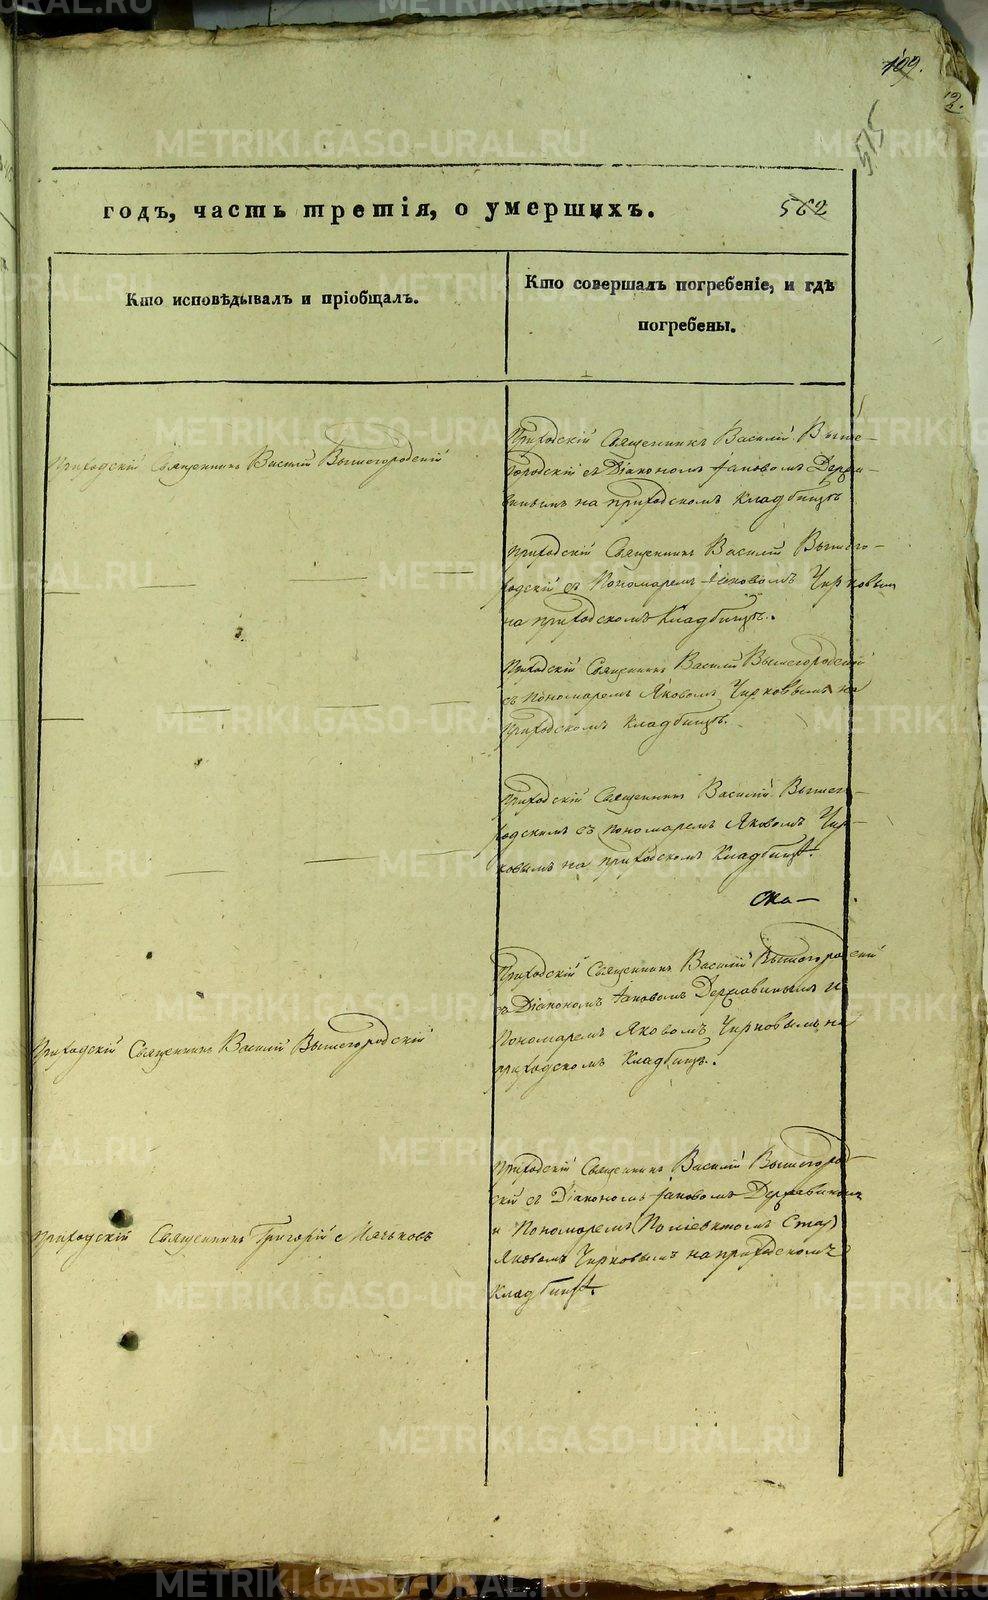 METRIKI.GASO-URAL.RU
199.
575
годъ, часть третія, о умершихъ.
562
Кто исповѣдывалъ и пріобщалъ.
Кто совершалъ погребеніе, и гдѣ
погребены.
Приходскій Священникъ Василій Вышегородскій
Приходскій Священникъ Василій Выше-
городскій съ Діакономъ Іаковомъ Держа-
винымъ на приходскомъ кладбищѣ
Приходскій Священникъ Василій Вышего-
родскій съ Пономаремъ Іаковомъ Чирковым
на приходскомъ Кладбищѣ.
Приходскій Священникъ Василій Вышегородскій
съ Пономаремъ Яковомъ Чирковымъ на
Приходскомъ Кладбищѣ.
Приходскій Священникъ Василій Вышего-
родскимъ съ пономаремъ Яковомъ Чир-
ковымъ на приходскомъ Кладбищѣ.
Ска-
Приходскій Священникъ Василій Вышегородскій
съ Діакономъ Іаковомъ Державинымъ и
Пономаремъ Яковомъ Чирковымъ на
приходскомъ Кладбищѣ.
Приходскій Священникъ Василій Вышегородскій
Приходскій Священникъ Василій Вышегород-
скій съ Діакономъ Іаковомъ Державиным
и Пономаремъ
Яковомъ Чирковымъ на приходскомъ
Кладбищѣ.
Приходскій Священникъ Григорій